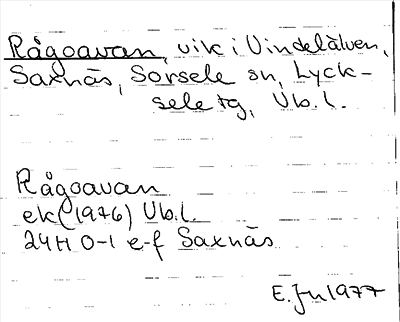 Rågoavan, vik i Vindelälven,
Saxnäs, Sorsele sn, Lyck-
sele tg, Vb. l.
Rågoavan
ek (1976) Vb. l.
24H 0-1 e-f Saxnäs
E. Jn 1977